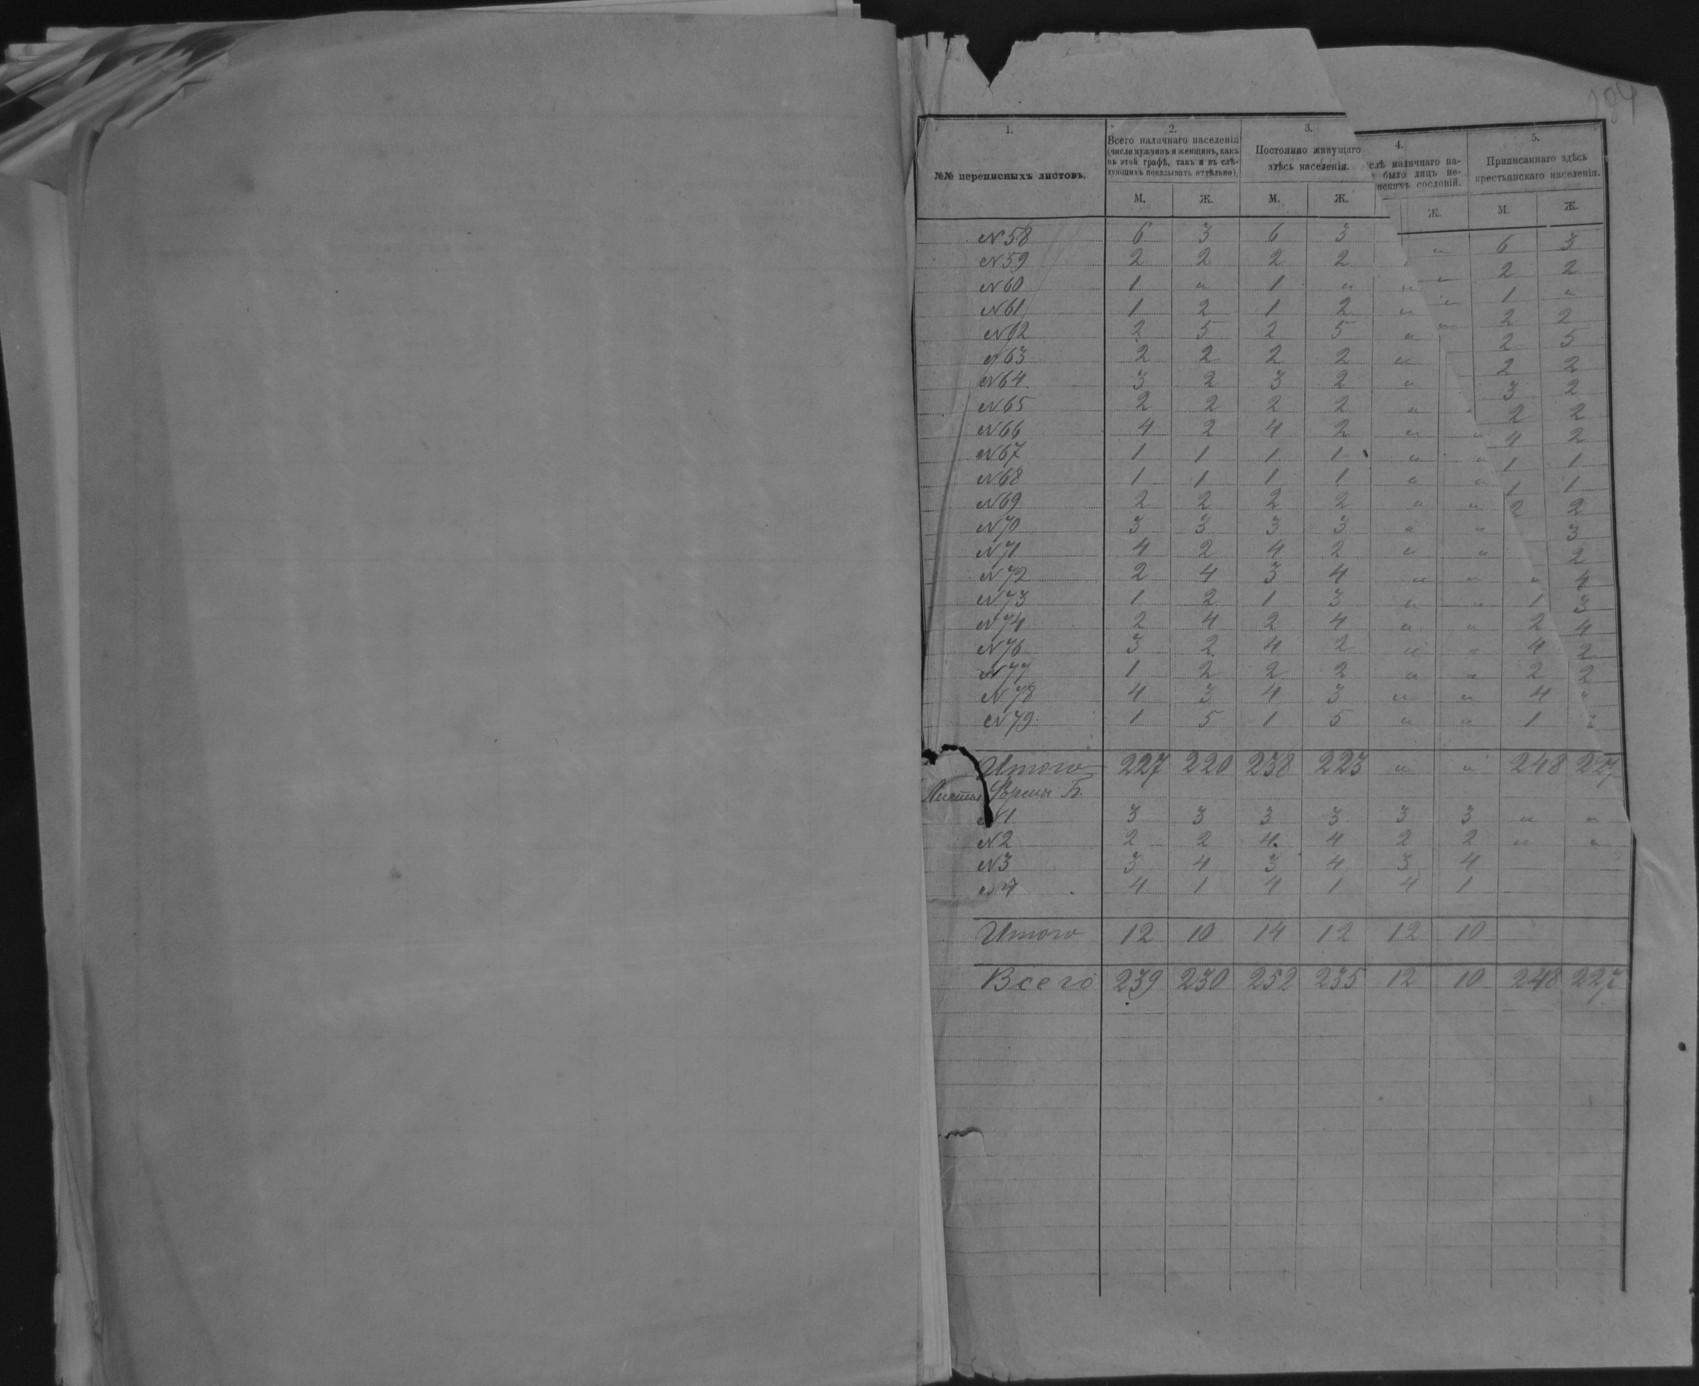 194
1. 2. 3. 4. 5.
№№ переписныхъ листовъ. Всего наличнаго населенія (число мужчинъ и женщинъ, какъ въ этой графѣ, такъ и въ слѣдующихъ показывать отдѣльно). Постоянно живущаго здѣсь населенія. слѣ наличнаго на- было лицъ не- нскихъ сословій. Приписаннаго здѣсь крестьянскаго населенія.
М. Ж. М. Ж. Ж. М. Ж.
№58 6 3 6 3 " 6 3
№59 2 2 2 2 " 2 2
№60 1 " 1 " " " 1 "
№61 1 2 1 2 " " 2 2
№62 2 5 2 5 " " 2 5
№63 2 2 2 2 " 2 2
№64 3 2 3 2 " 3 2
№65 2 2 2 2 " " 2 2
№66 4 2 4 2 " " 4 2
№67 1 1 1 1 " " 1 1
№68 1 1 1 1 " " 1 1
№69 2 2 2 2 " " 2 2
№70 3 3 3 3 " " 3
№71 4 2 4 2 " " 2
№72 2 4 3 4 " " " 4
№73 1 2 1 3 " " 1 3
№74 2 4 2 4 " " 2 4
№76 3 2 4 2 " " 4 2
№77 1 2 2 2 " " 2 2
№78 4 3 4 3 " " 4
№79 1 5 1 5 " " 1
Итого 227 220 238 223 " " 248 227
Листы Формы Б.
№1 3 3 3 3 3 3 " "
№2 2 2 4 4 2 2 " "
№3 3 4 3 4 3 4
№4 4 1 4 1 4 1
Итого 12 10 14 12 12 10
Всего 239 230 252 235 12 10 248 227